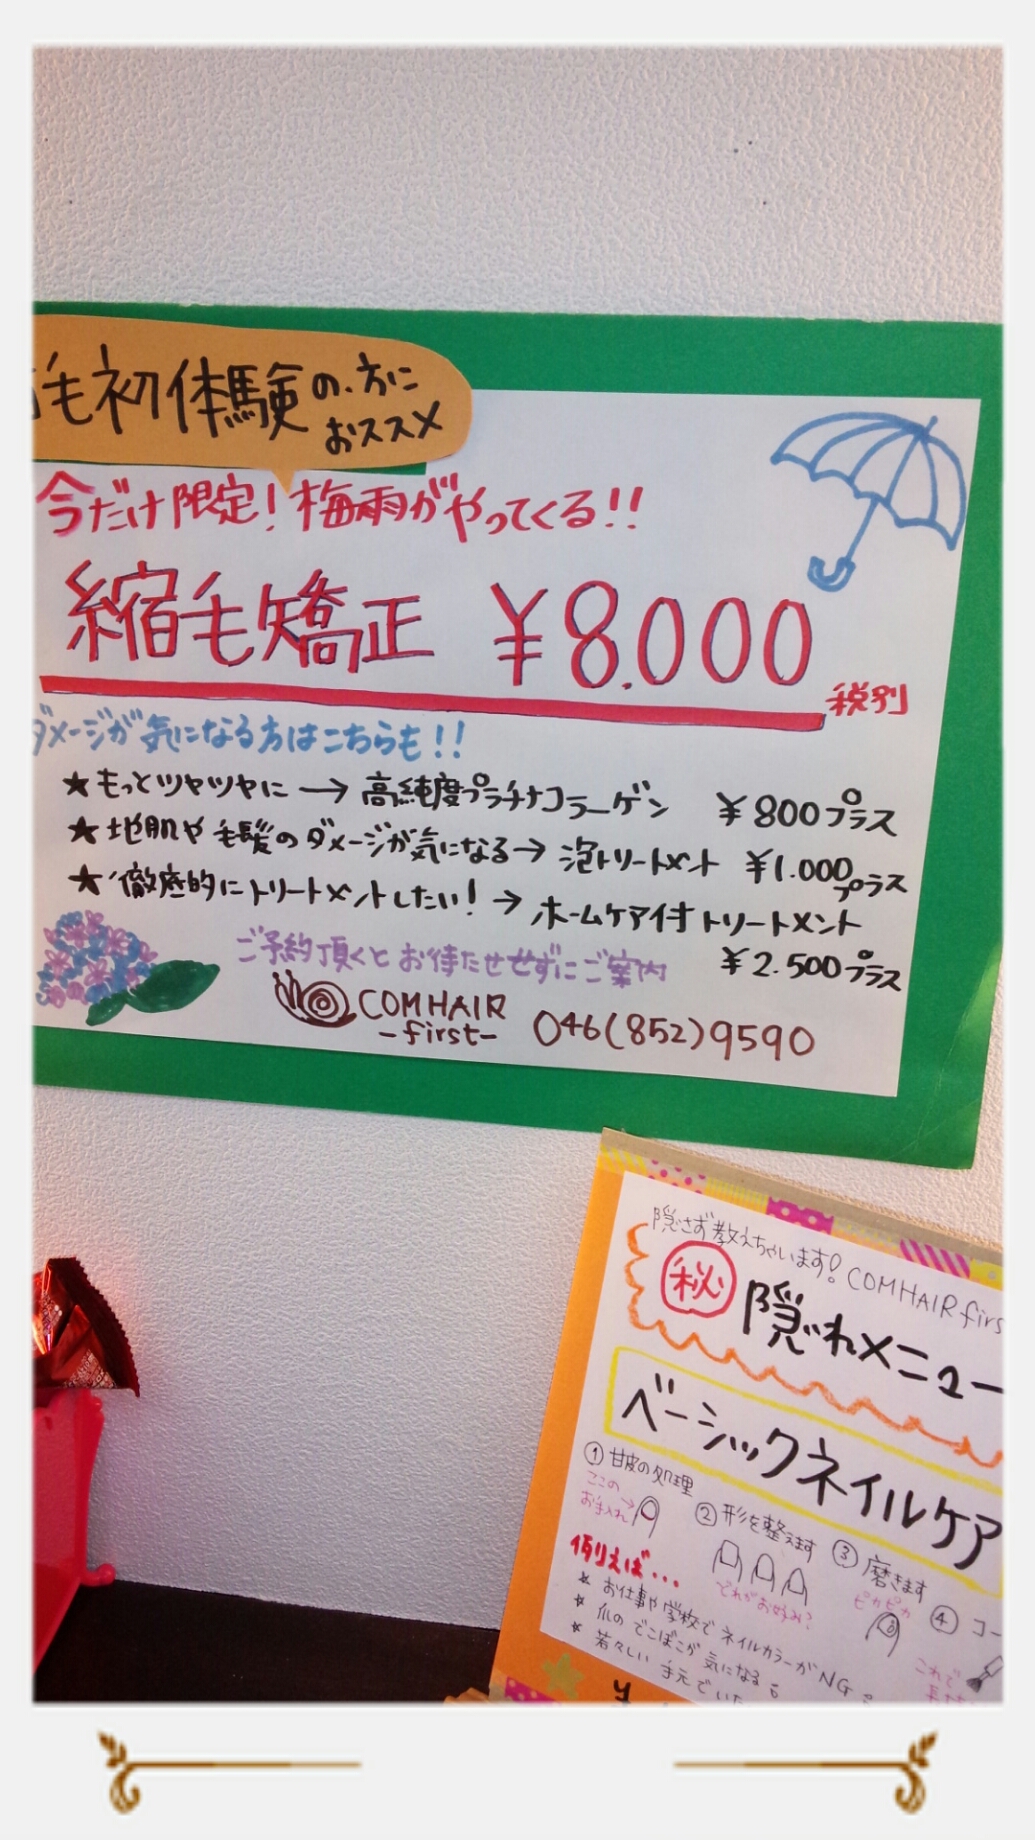 毛初体験の方に
おススメ
今だけ限定！梅雨がやってくる!!
縮毛矯正 ¥8.000
税別
ダメージが気になる方はこちらも!!
★もっとツヤツヤに→高純度プラチナコラーゲン ¥800プラス
★地肌や毛髪のダメージが気になる→泡トリートメント ¥1.000プラス
★徹底的にトリートメントしたい！→ホームケア付トリートメント
¥2.500プラス
ご予約頂くとお待たせせずにご案内
COMHAIR
-first-
046(852)9590
隠さず教えちゃいます！COMHAIR firs
秘 隠れメニュー
ベーシックネイルケア
①甘皮の処理
ここの
お手入れ→
②形を整えます
どれがお好み？
③磨きます
ピカピカ
④コー
これで
例えば...
★お仕事や学校でネイルカラーがNG
★爪のでこぼこが気になる
★若々しい手元でいた
¥